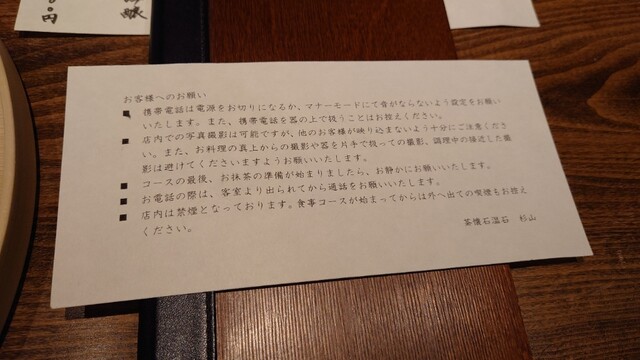 お客様へのお願い
■ 携帯電話は電源をお切りになるか、マナーモードにて音がならないよう設定をお願い
いたします。また、携帯電話を器の上で扱うことはお控えください。
■ 店内での写真撮影は可能ですが、他のお客様が映り込まないよう十分にご注意くださ
い。また、お料理の真上からの撮影や器を片手で扱っての撮影、調理中の接近した撮
影は避けてくださいますようお願いいたします。
■ コースの最後、お抹茶の準備が始まりましたら、お静かにお願いいたします。
■ お電話の際は、客室より出られてから通話をお願いいたします。
■ 店内は禁煙となっております。食事コースが始まってからは外へ出ての喫煙もお控え
ください。
茶懐石温石 杉山
円